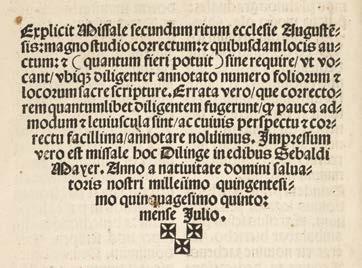 Explicit Missale secundum ritum ecclesie Augustẽ-
sis: magno studio correctum: ⁊ quibusdam locis au-
ctum: ⁊ (quantum fieri potuit) sine require/ vt vo-
cant/ vbiqꝫ diligenter annotato numero foliorum ⁊
locorum sacre scripture. Errata vero/ que correcto-
rem quantumlibet diligentem fugerunt/ qꝫ pauca ad-
modum ⁊ leviuscula sint/ ac cuivis perspectu ⁊ cor-
rectu facillima/ annotare noluimus. Impressum
vero est missale hoc Dilinge in edibus Sebaldi
Mayer. Anno a nativitate domini salua-
toris nostri millesimo quingentesi-
mo quinquagesimo quinto:
mense Julio.